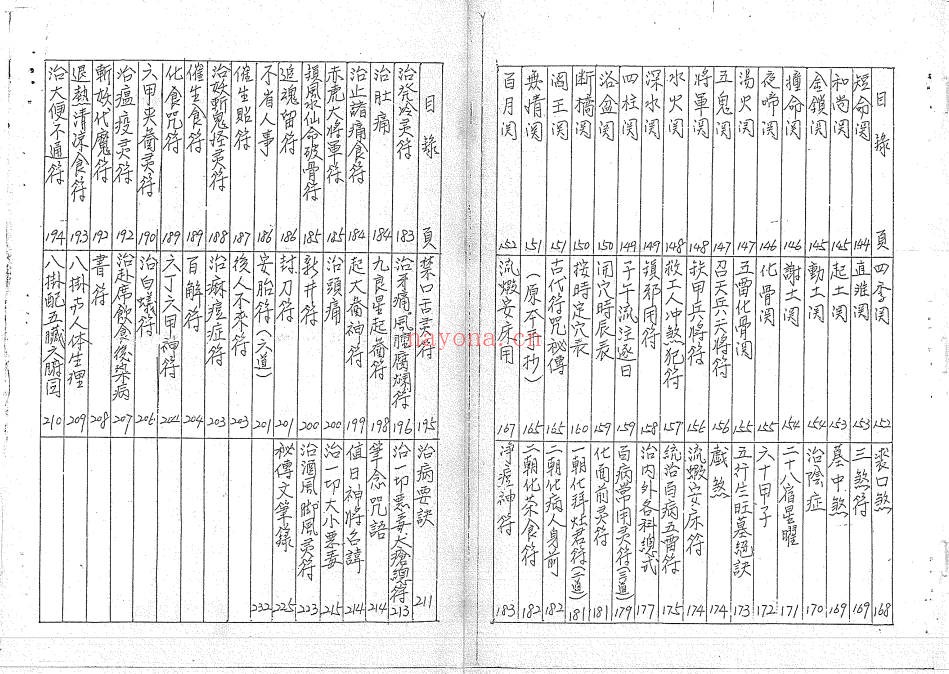 目錄 頁
短命関 144
和尚関 145
金鎖関 145
撞命関 146
夜啼関 146
湯火関 147
五鬼関 147
將軍関 148
水火関 148
深水関 149
四柱関 149
浴盆関 150
断橋関 150
阎王関 151
無情関 151
百月関 152
四季関 152
直难関 153
起土関 153
動土関 154
謝土関 154
化骨関 155
五雷化骨関 155
召天兵天將符 156
鉄甲兵將符 156
救工人冲煞犯符 157
鎮邪用符 158
子午流注逐日 159
開穴時辰表 159
按時定穴表 160
古代符咒秘傳 165
(原本重抄) 165
流煅安床用 167
丧口煞 168
三煞符 169
墓中煞 169
治陰症 170
二十八宿星曜 171
六十甲子 172
五行生旺墓絕訣 173
戲煞 174
流蝦安床符 174
統治百病五雷符 175
治内外各科總式 177
百病常用灵符(二道) 179
化面前灵符 181
一朝化拜灶君符(二道) 181
二朝化病人身前 182
三朝化茶食符 182
淨痘神符 183
目錄 頁
治發冷灵符 183
治肚痛 184
治止諸痛食符 184
赤虎大將軍符 185
領風水仙命破骨符 185
追魂留符 186
不省人事 186
催生貼符 187
治妖斬鬼怪灵符 188
催生食符 189
化食咒符 189
六甲夹衛灵符 190
治瘟疫灵符 192
斬妖代魔符 192
退熱清凉食符 193
治大便不通符 194
禁口舌灵符 195
治牙痛風腫腐爛符 196
九良星起衛符 198
起大衛神符 199
治頭痛 200
新井符 200
封刀符 201
安胎符(六道) 201
後人不來符 203
治麻痘症符 203
百解符 204
六丁六甲神符 204
治白蟻符 206
治赴席飲食後染病 207
書符 208
八掛与人体生理 209
八掛配五臓六腑図 210
治病要訣 211
治一切悪毒大瘡總符 213
筆念咒語 214
值日神將名諱 214
治一切大小粟毒 215
治酒風脚風灵符 223
秘傳文筆錄 225
232
nayona.cn